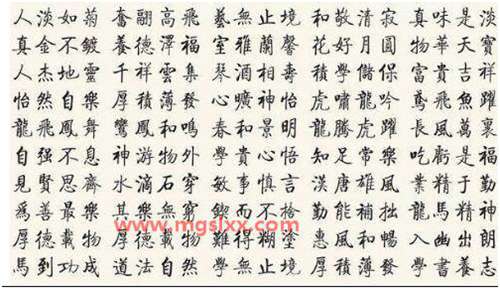 人淡如菊 奮翮高飛 藝無止境 和敬清寂 真味是淡
真金不鍍 養德澤福 室雅蘭馨 花好月圓 物華天寶
人杰地靈 千祥雲集 琴酒相壽 積學儲保 富貴吉祥
怡然自樂 厚積薄發 心曠神怡 虎嘯龍吟 鳶飛魚躍
龍飛鳳舞 鸞鳳和鳴 春和景明 龍騰虎躍 長風萬裏
自强不息 神游物外 學貴心悟 知足常樂 吃虧是福
見賢思齊 水滴石穿 敏事慎言 漢唐雄風 業精于勤
爲善最樂 其樂無窮 鍥而不捨 勤能補拙 龍馬精神
www.mgslxx.com
厚德載物 難得糊塗 惠風和暢 入幽出朗
馬到功成 道法自然 學無止境 厚積薄發 學書養志